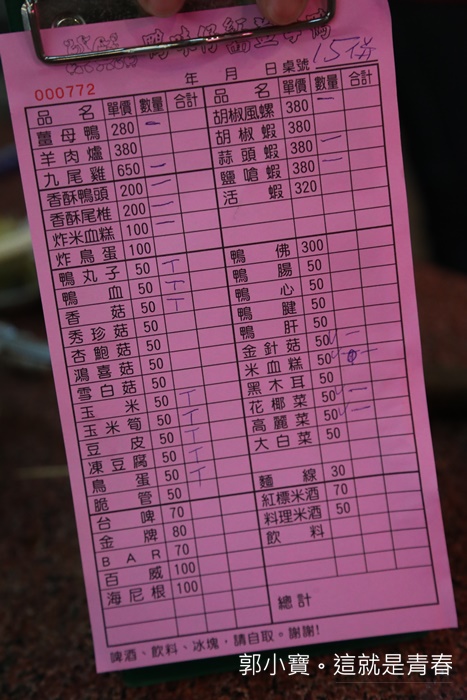 鴨味仔
15併
000772
年 月 日 桌號
品名 單價 數量 合計
薑母鴨 280 一
羊肉爐 380
九尾雞 650 一
香酥鴨頭 200 一
香酥尾椎 200 一
炸米血糕 100 一
炸鳥蛋 100
鴨丸子 50 T
鴨血 50 T
香菇 50 T
秀珍菇 50
杏鮑菇 50
鴻喜菇 50
雪白菇 50
玉米 50 T
玉米筍 50 T
豆皮 50 T
凍豆腐 50 T
鳥蛋 50 T
脆管 50
台啤 70
金牌 80
BAR 70
百威 100
海尼根 100
品名 單價 數量 合計
胡椒風螺 380 一
胡椒蝦 380
蒜頭蝦 380 一
鹽嗆蝦 380 一
活蝦 320
鴨佛 300
鴨腸 50
鴨心 50
鴨腱 50
鴨肝 50
金針菇 50 一
米血糕 50
黑木耳 50
花椰菜 50 一
高麗菜 50 一
大白菜 50
麵線 30
紅標米酒 70
料理米酒 50
飲料
總計
啤酒、飲料、冰塊,請自取。謝謝!
郭小寶。這就是青春